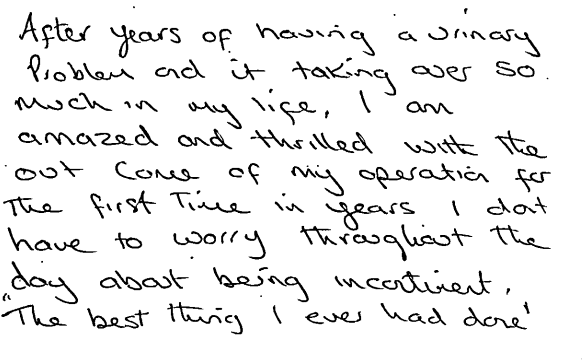 After years of having a urinary
Problem and it taking over so
much in my life, I am
amazed and thrilled with the
out come of my operation for
The first Time in years I dont
have to worry throughout the
day about being incontinent.
"The best thing I ever had done'